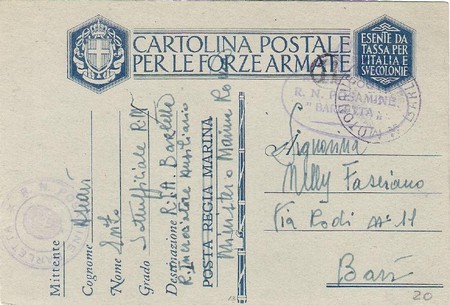 CARTOLINA POSTALE
PER LE FORZE ARMATE
ESENTE DA
TASSA PER
L'ITALIA E
SUE COLONIE
R. N. POSAMINE
"BARLETTA"
Signorina
Nelly
Via Rodi n° 11
Bari
Mittente
Cognome
Nome Vito
Grado Sottufficiale R.M.
Destinazione R. N. Barletta
R. Incrociatore Ausiliario
POSTA REGIA MARINA
Ministero Marina Roma
R. N. POSAMINE
20